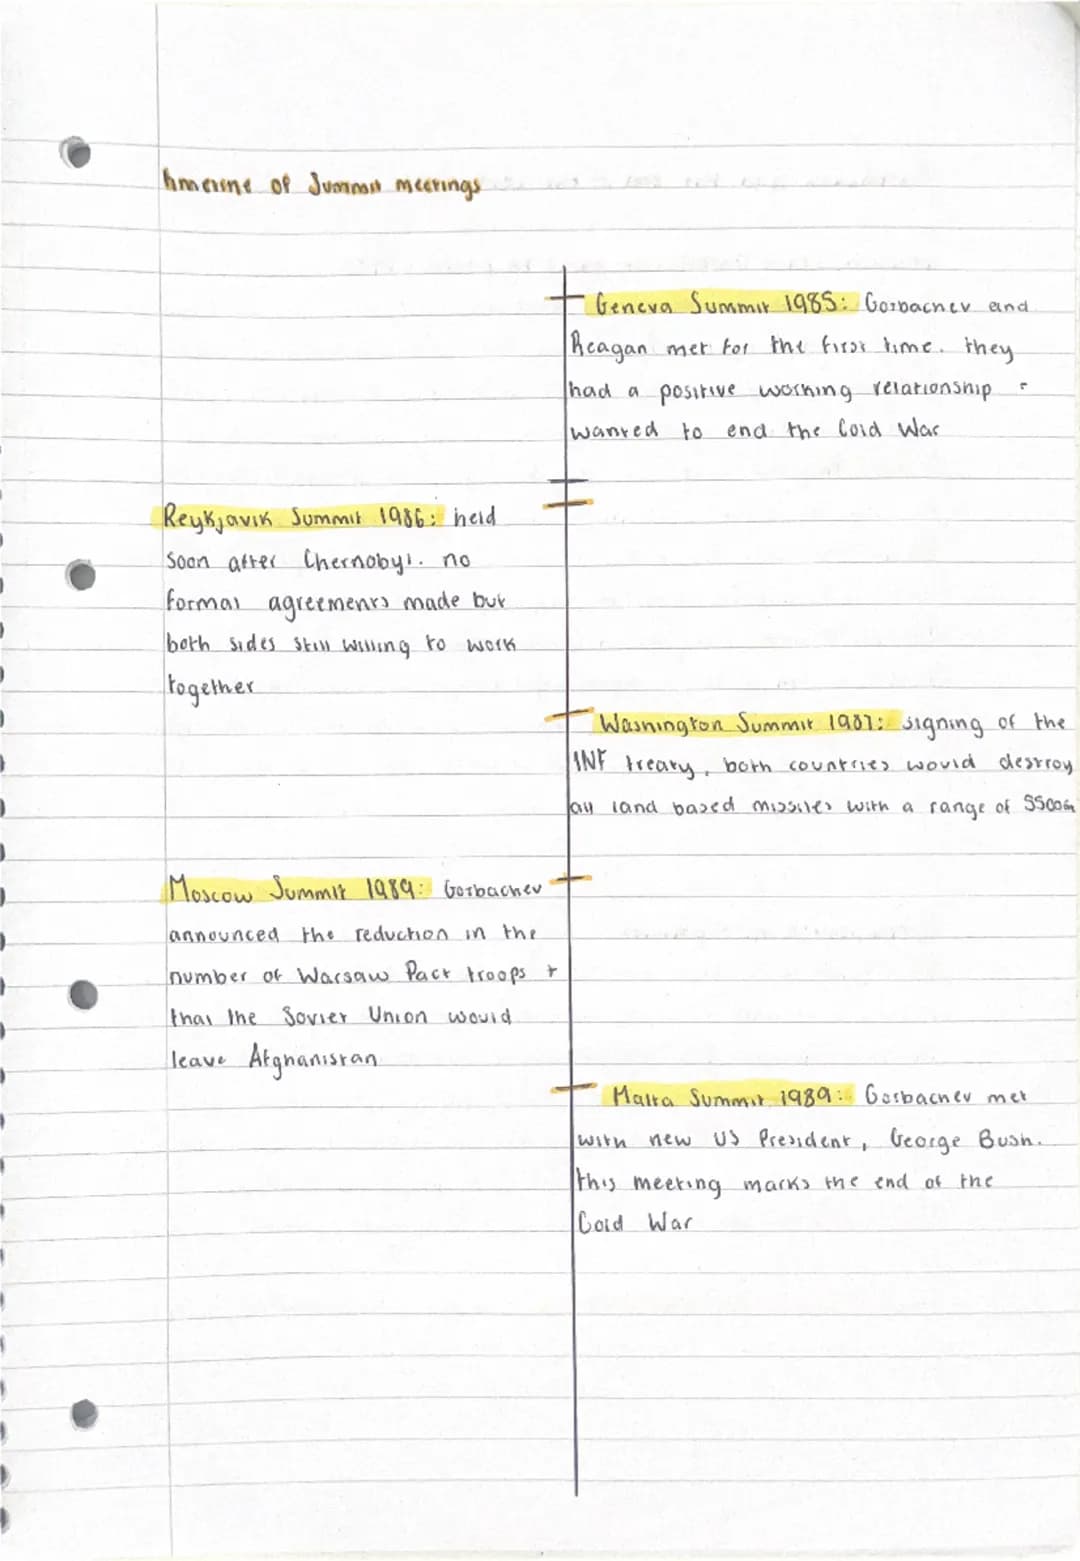 timeline of Summit meetings
Geneva Summit 1985: Gorbachev and
Reagan met for the first time. they
had a positive working relationship -
wanted to end the Cold War
Reykjavik Summit 1986: held
soon after Chernobyl. no
formal agreements made but
both sides still willing to work
together
Washington Summit 1987: signing of the
INF treaty, both countries would destroy
all land based missiles with a range of
Moscow Summit 1989: Gorbachev
announced the reduction in the
number of Warsaw Pact troops +
that the Soviet Union would
leave Afghanistan
Malta Summit 1989: Gorbachev met
with new US President, George Bush.
this meeting marks the end of the
Cold War